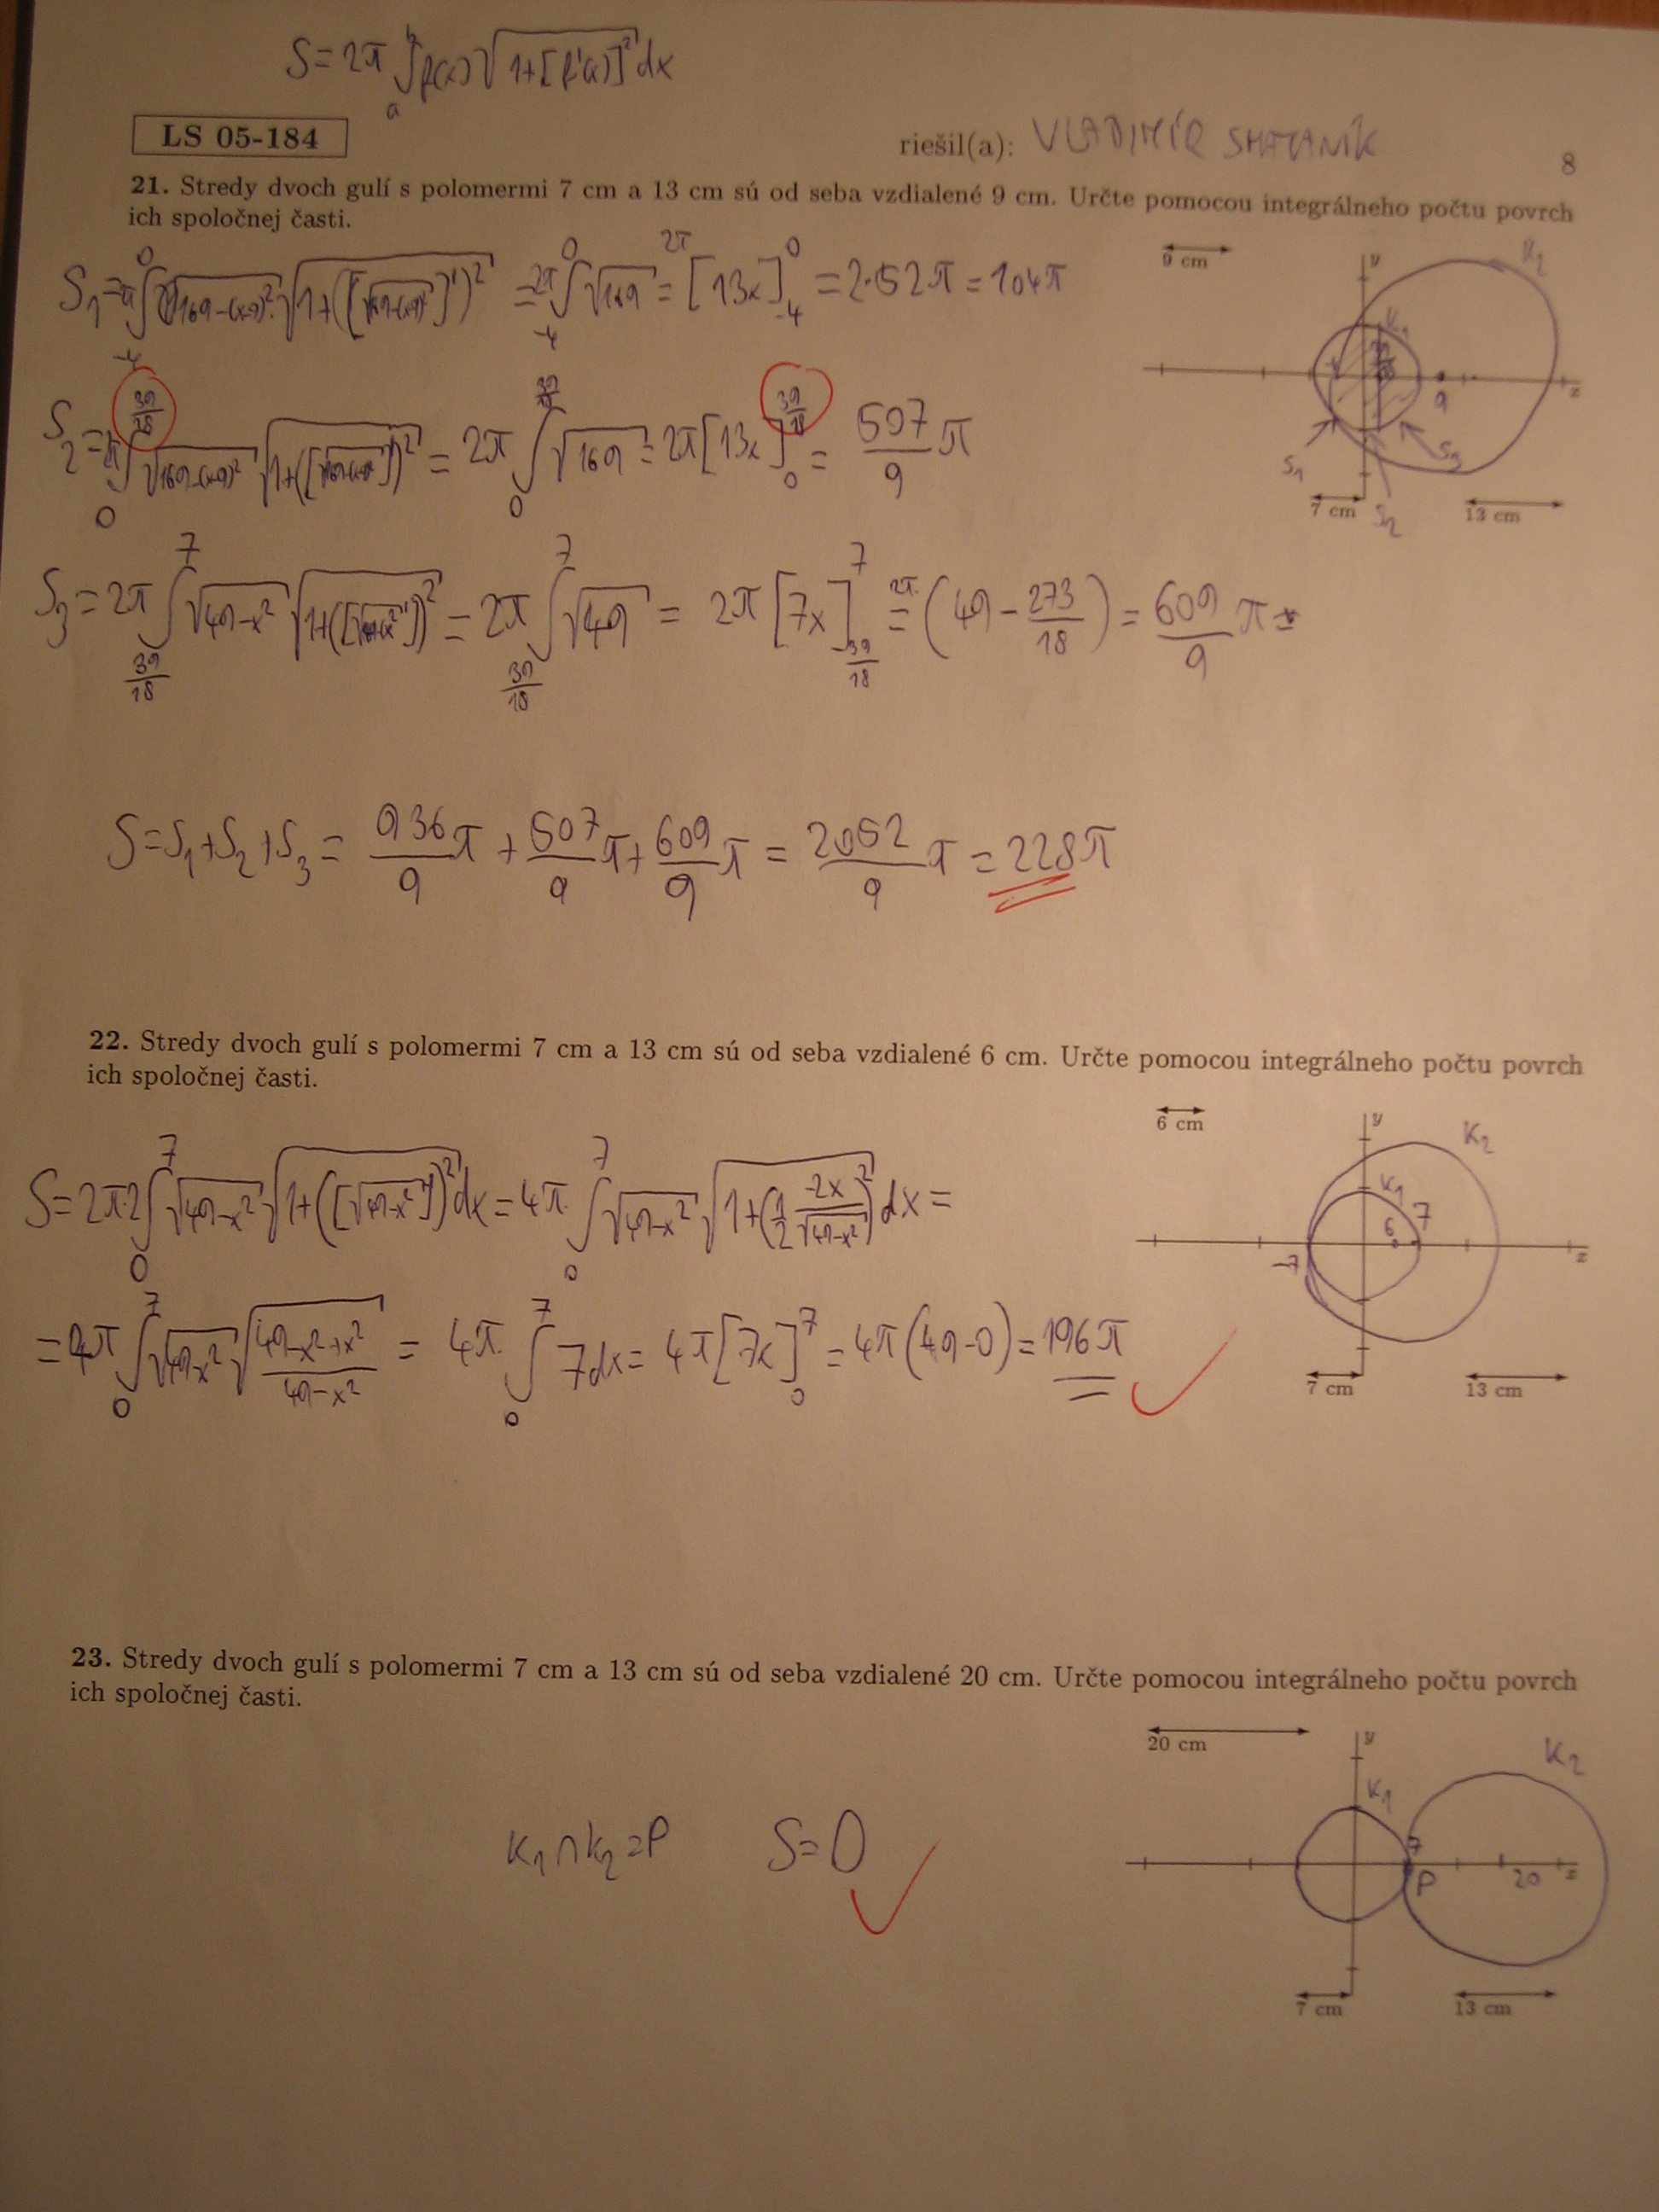 S = 2π ∫_a^b f(x) √(1+[f'(x)]²) dx
LS 05-184
riešil(a): VLADIMÍR
8
21. Stredy dvoch gulí s polomermi 7 cm a 13 cm sú od seba vzdialené 9 cm. Určte pomocou integrálneho počtu povrch
ich spoločnej časti.
S₁ = 2π ∫_{-4}^0 √(169-(x-9)²) √(1+([√(169-(x-9)²)]')²) = 2π ∫_{-4}^0 √169 = 2π [13x]_{-4}^0 = 2·52π = 104π
9 cm
y
K₂
K₁
9
x
S₁
S₃
S₂
7 cm
13 cm
S₂ = 2π ∫_0^{39/18} √(169-(x-9)²) √(1+([√(169-(x-9)²)]')²) = 2π ∫_0^{39/18} √169 = 2π [13x]_0^{39/18} = 507/9 π
S₃ = 2π ∫_{39/18}^7 √(49-x²) √(1+([√(49-x²)]')²) = 2π ∫_{39/18}^7 √49 = 2π [7x]_{39/18}^7 = 2π (49 - 273/18) = 609/9 π
S = S₁+S₂+S₃ = 936/9 π + 507/9 π + 609/9 π = 2052/9 π = 228π
22. Stredy dvoch gulí s polomermi 7 cm a 13 cm sú od seba vzdialené 6 cm. Určte pomocou integrálneho počtu povrch
ich spoločnej časti.
6 cm
y
K₂
K₁
6
7
-7
x
7 cm
13 cm
S = 2π·2 ∫_0^7 √(49-x²) √(1+([√(49-x²)]')²) dx = 4π· ∫_0^7 √(49-x²) √(1+(1/2 · -2x/√(49-x²))²) dx =
= 4π ∫_0^7 √(49-x²) √((49-x²+x²)/(49-x²)) = 4π· ∫_0^7 7dx = 4π [7x]_0^7 = 4π (49-0) = 196π
23. Stredy dvoch gulí s polomermi 7 cm a 13 cm sú od seba vzdialené 20 cm. Určte pomocou integrálneho počtu povrch
ich spoločnej časti.
20 cm
y
K₂
K₁
7
P
20
x
7 cm
13 cm
K₁ ∩ K₂ = P S = 0